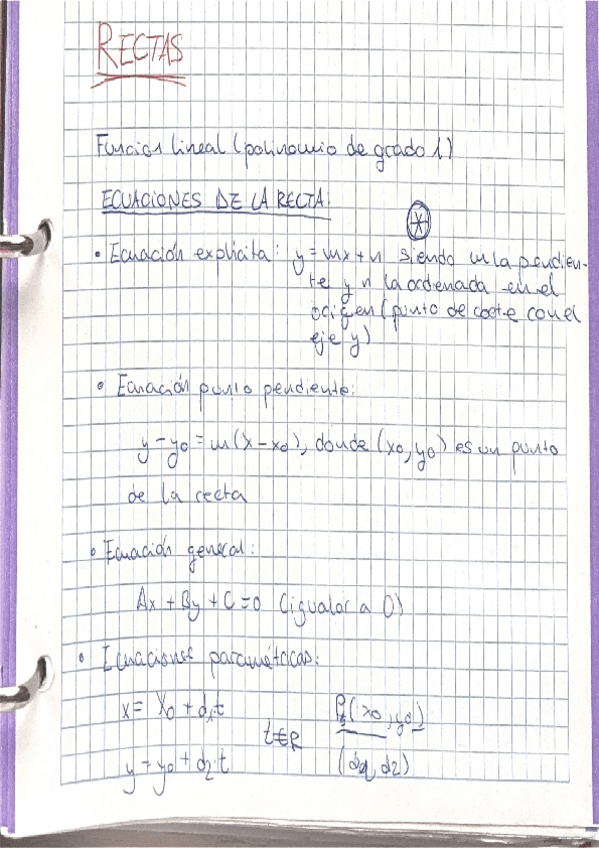 RECTAS
Función lineal (polinomio de grado 1)
ECUACIONES DE LA RECTA:
• Ecuación explícita: y = mx + n siendo m la pendien-
te y n la ordenada en el
origen (punto de corte con el
eje y)
• Ecuación punto pendiente:
y - y₀ = m(x - x₀), donde (x₀, y₀) es un punto
de la recta
• Ecuación general:
Ax + By + C = 0 (igualar a 0)
• Ecuaciones paramétricas:
x = x₀ + d₁·t
t ∈ R
P(x₀, y₀)
y = y₀ + d₂·t
(d₁, d₂)